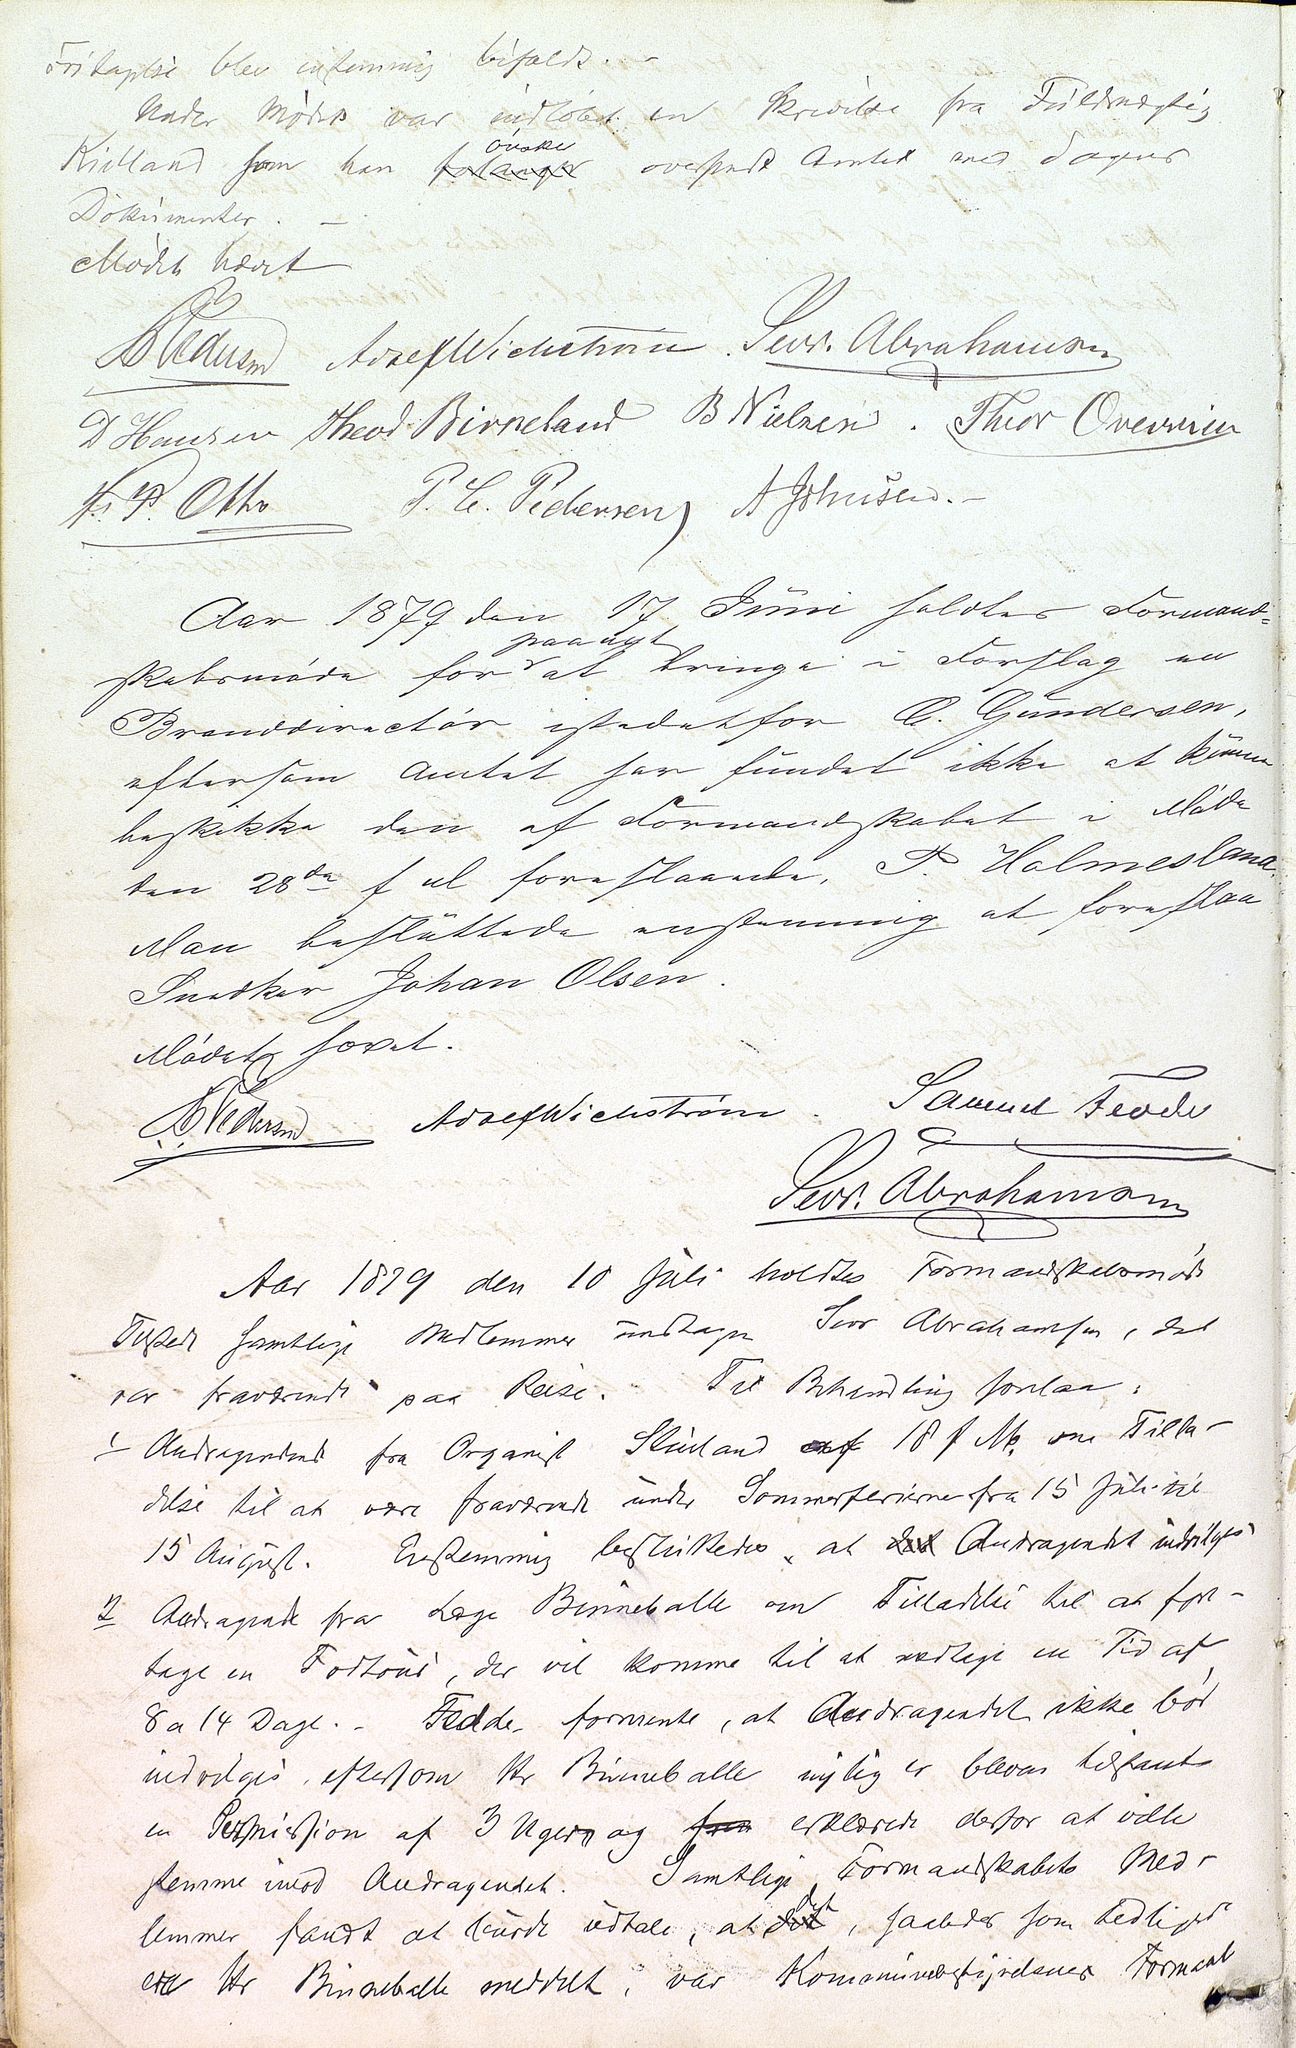 Fritagelse blev enstemmig bifaldt. -
Under Mødet var indløbet en Skrivelse fra Fuldmægtig
Kielland som han forlanger ønsker oversendt Amtet med Dagens
Dokümenter. -
Mødet hævet
B Pedersen Adolf Wichstrøm. Sevr. Abrahamsen
D Hansen Theod. Birkeland B Nielsen. Thor Overvien
P. Otto P. C. Pedersen A Johnsen. -
Aar 1879 den 17 Jüni holdtes Formand-
skabsmøde for paanyt at bringe i Forslag en
Branddirectør istedetfor C. Gündersen,
eftersom Amtet har fündet ikke at künne
beskikke den af Formandskabet i Møde
den 28de f M foreslaaede, P. Holmesland.
Man beslüttede enstemmig at foreslaa
Snedker Johan Olsen.
Mødet hævet.
B Pedersen Adolf Wichstrøm. Samuel Fedde
Sevr. Abrahamsen
Aar 1879 den 10 Jüli holdtes Formandskabsmøde
Tilstede samtlige Medlemmer undtagen Sevr Abrahamsen, der
var fraværende paa Reise. Til Behandling forelaa:
1 Andragende fra Organist Stüeland af 18 f M. om Tilla-
delse til at være fraværende ünder Sommerferierne fra 15 Jüli til
15 Aügust. Enstemmig beslüttedes, at det Andragendet indvilges
2 Andragende fra Læge Binneballe om Tilladelse til at fore-
tage en Fodtoür, der vil komme til at medtage en Tid af
8 a 14 Dage. - Fedde formente, at Andragendet ikke bør
indvilges, eftersom Hr Binneballe nylig er bleven tilstaaet
en Permission af 3 Uger, og erklærede derfor at ville
stemme imod Andragendet. Samtlige Formandskabets Med-
lemmer fandt at bürde üdtale, at det det, saaledes som tidligere
Hr Binneballe meddelt, var Kommünebestyrelsens Formaal